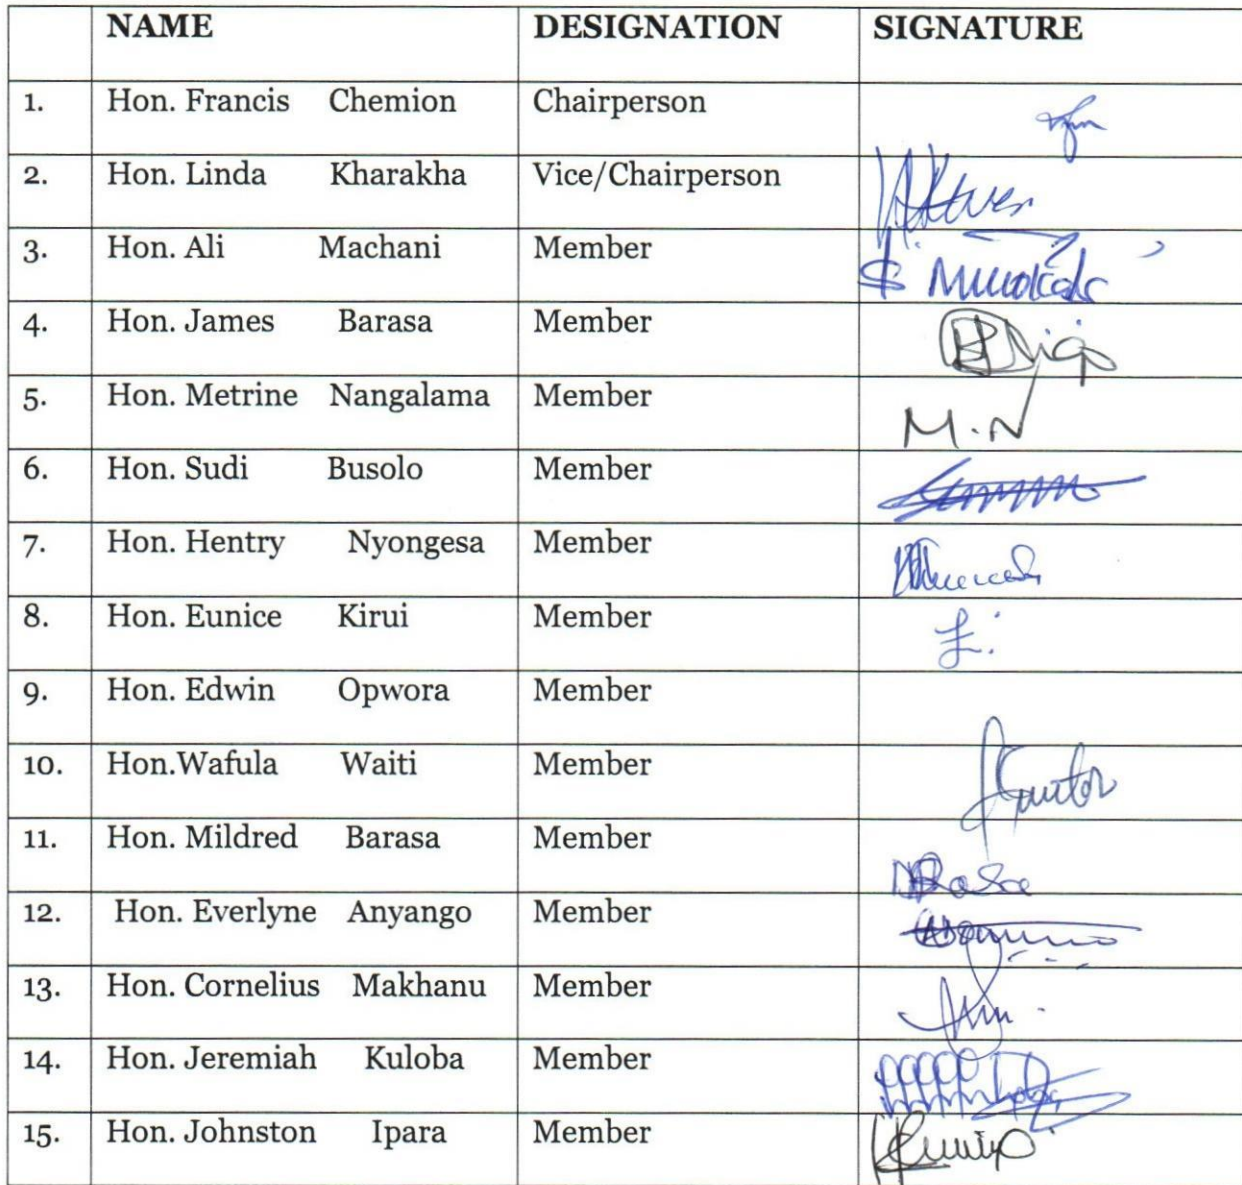 NAME DESIGNATION SIGNATURE
1. Hon. Francis Chemion Chairperson
2. Hon. Linda Kharakha Vice/Chairperson
3. Hon. Ali Machani Member
4. Hon. James Barasa Member
5. Hon. Metrine Nangalama Member M.N
6. Hon. Sudi Busolo Member
7. Hon. Hentry Nyongesa Member
8. Hon. Eunice Kirui Member
9. Hon. Edwin Opwora Member
10. Hon.Wafula Waiti Member
11. Hon. Mildred Barasa Member
12. Hon. Everlyne Anyango Member
13. Hon. Cornelius Makhanu Member
14. Hon. Jeremiah Kuloba Member
15. Hon. Johnston Ipara Member